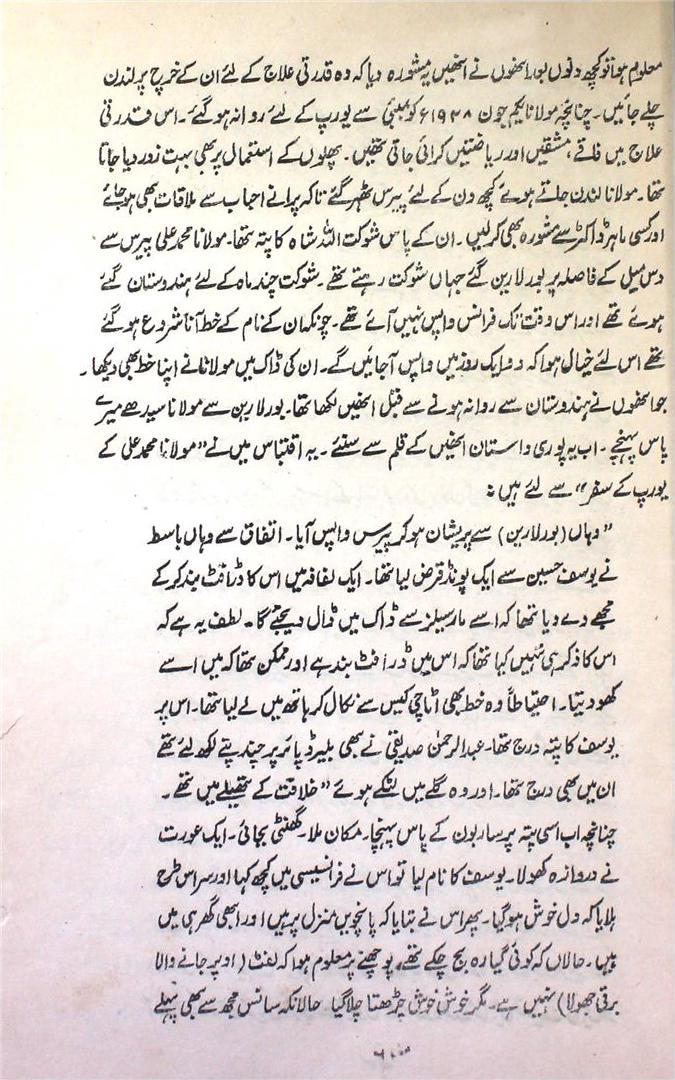 معلوم ہوتا تو کچھ دنوں بعد انھوں نے انھیں یہ مشورہ دیا کہ وہ قدرتی علاج کے لئے ان کے خرچ پر لندن
چلے جائیں۔ چنانچہ مولانا یکم جون ۱۹۲۸ء کو بمبئی سے یورپ کے لئے روانہ ہو گئے۔ اس قدرتی
علاج میں فاقے، مشقیں اور ریاضتیں کرائی جاتی تھیں۔ پھلوں کے استعمال پر بھی بہت زور دیا جاتا
تھا۔ مولانا لندن جاتے ہوئے کچھ دن کے لئے پیرس ٹھہر گئے تاکہ پرانے احباب سے ملاقات بھی ہو جائے
اور کسی ماہر ڈاکٹر سے مشورہ بھی کر لیں۔ ان کے پاس شوکت اللہ شاہ کا پتہ تھا۔ مولانا محمد علی پیرس سے
دس میل کے فاصلہ پر بورلارین گئے جہاں شوکت رہتے تھے۔ شوکت چند ماہ کے لئے ہندوستان گئے
ہوئے تھے اور اس وقت تک فرانس واپس نہیں آئے تھے۔ چونکہ ان کے نام کے خط آنا شروع ہو گئے
تھے اس لئے خیال ہوا کہ دو ایک روز میں واپس آ جائیں گے۔ ان کی ڈاک میں مولانا نے اپنا خط بھی دیکھا۔
جو انھوں نے ہندوستان سے روانہ ہونے سے قبل انھیں لکھا تھا۔ بورلارین سے مولانا سیدھے میرے
پاس پہنچے۔ اب یہ پوری داستان انھیں کے قلم سے سنئے۔ یہ اقتباس میں نے "مولانا محمد علی کے
یورپ کے سفر" سے لئے ہیں:
"وہاں (بورلارین) سے پریشان ہو کر پیرس واپس آیا۔ اتفاق سے وہاں باسط
نے یوسف حسین سے ایک پونڈ قرض لیا تھا۔ ایک لفافہ میں اس کا ڈرافٹ بند کر کے
مجھے دے دیا تھا کہ اسے مارسیلز سے ڈاک میں ڈال دیجئے گا۔ لطف یہ ہے کہ
اس کا ذکر ہی نہیں کیا تھا کہ اس میں ڈرافٹ بند ہے اور ممکن تھا کہ میں اسے
کھو دیتا۔ احتیاطاً وہ خط بھی اٹاچی کیس سے نکال کر ہاتھ میں لے لیا تھا۔ اس پر
یوسف کا پتہ درج تھا۔ عبدالرحمٰن صدیقی نے بھی بلیرڈ پائر پر چند پتے لکھ لئے تھے
ان میں بھی درج تھا۔ اور وہ گلے میں لٹکے ہوئے "خلافت کے تھیلے میں تھے۔
چنانچہ اب اسی پتہ پر ساربون کے پاس پہنچا۔ مکان ملا۔ گھنٹی بجائی۔ ایک عورت
نے دروازہ کھولا۔ یوسف کا نام لیا تو اس نے فرانسیسی میں کچھ کہا اور سر اس طرح
ہلایا کہ دل خوش ہو گیا۔ پھر اس نے بتایا کہ پانچویں منزل پر ہیں اور ابھی گھر ہی میں
ہیں۔ حالاں کہ کوئی گیارہ بج چکے تھے۔ پوچھنے پر معلوم ہوا کہ لفٹ (اوپر جانے والا
برقی جھولا) نہیں ہے۔ مگر خوش خوش چڑھتا چلا گیا حالانکہ سانس مجھ سے بھی پہلے